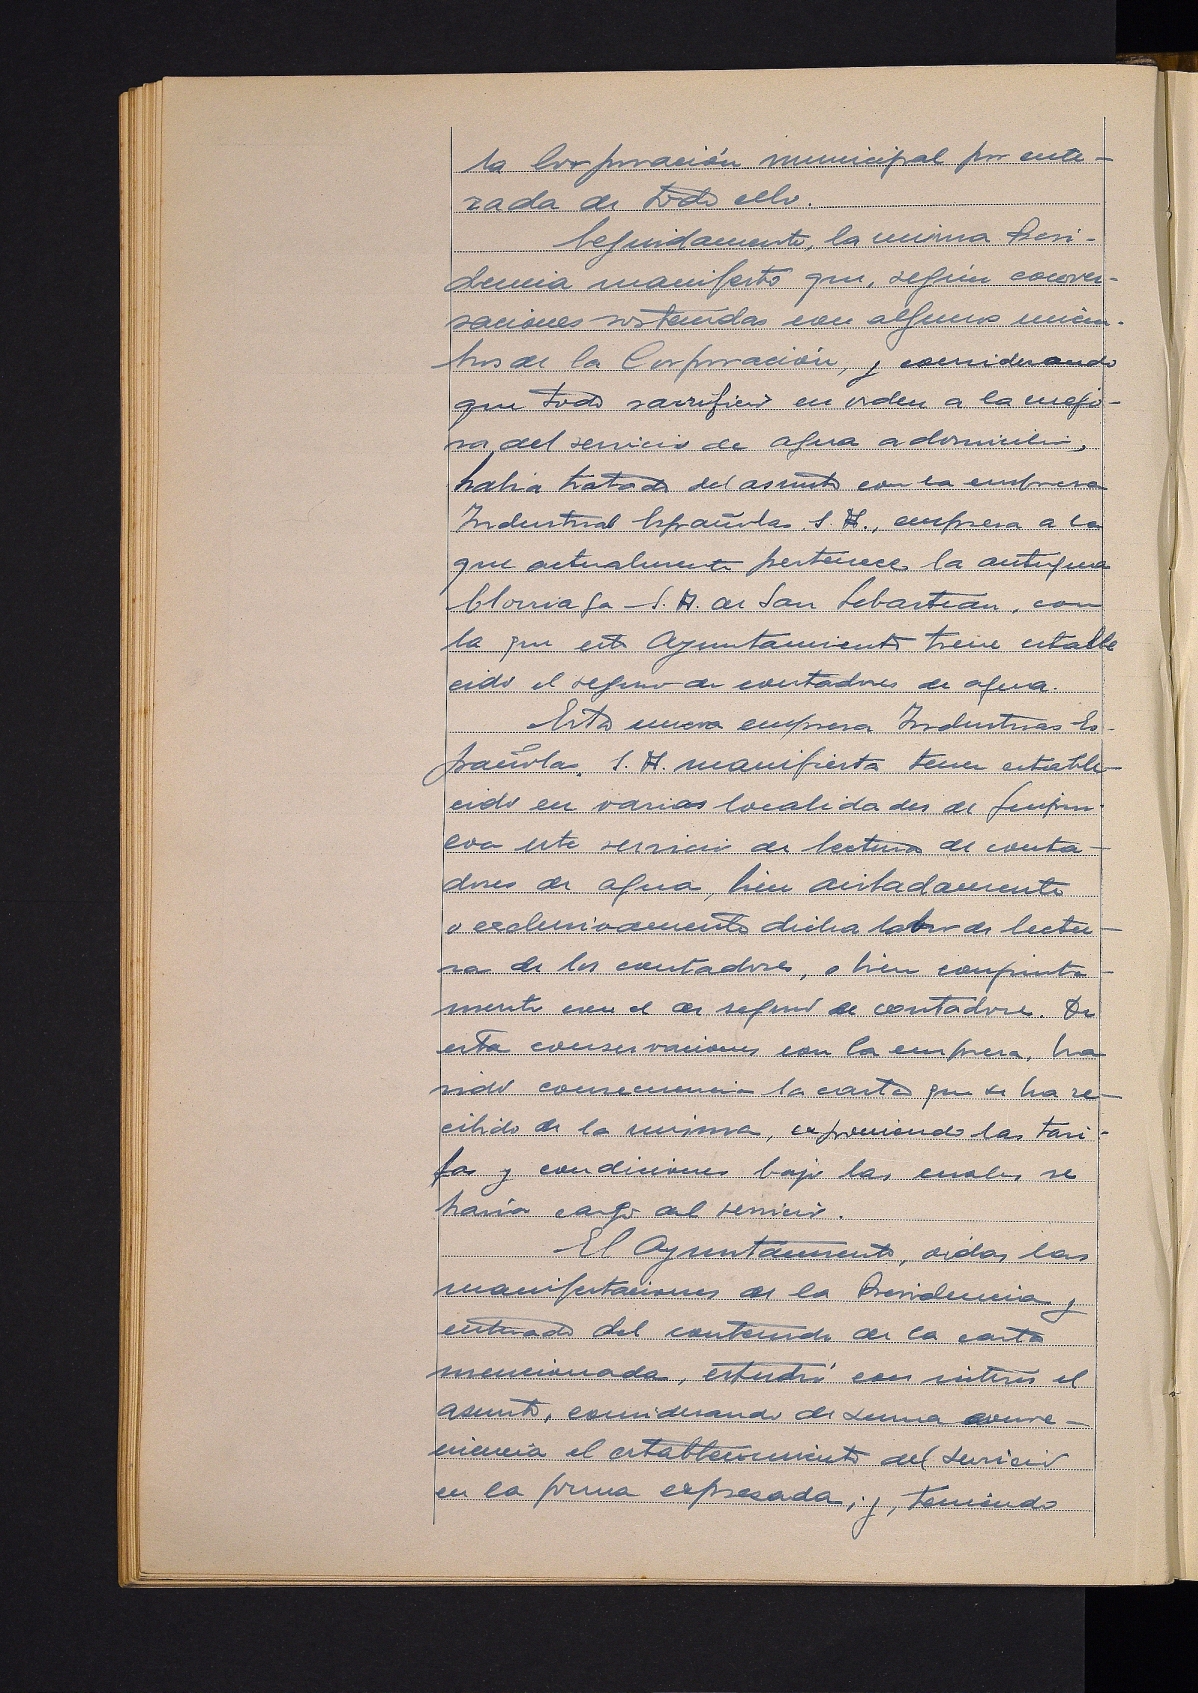 la Corporación municipal por ente-
rada de todo ello.
Seguidamente, la misma Presi-
dencia manifestó que, según conver-
saciones sostenidas con algunos miem-
bros de la Corporación, y considerando
que todo sacrificio en orden a la mejo-
ra del servicio de agua a domicilio,
había tratado del asunto con la empresa
Industrial Españolas S.A., empresa a la
que actualmente pertenece la antigua
Elorriaga S.A. de San Sebastián, con
la que este Ayuntamiento tiene estable
cido el seguro de contadores de agua.
Esta nueva empresa Industrias Es-
pañolas, S.A. manifiesta tener estable-
cido en varias localidades de Guipuz-
coa este servicio de lectura de conta-
dores de agua, bien aisladamente
o exclusivamente dicha labor de lectu-
ra de los contadores, o bien conjunta-
mente con el de seguro de contadore. De
esta conservaciones con la empresa, ha
sido consecuencia la carta que se ha re-
cibido de la misma, exponiendo las tari-
fas y condiciones bajo las cuales se
haría cargo del servicio.
El Ayuntamiento, oidas las
manifestaciones de la Presidencia y
enterado del contenido de la carta
mencionada, estudió con interés el
asunto, considerando de suma conve-
niencia el establecimiento del servicio
en la forma expresada; y, teniendo